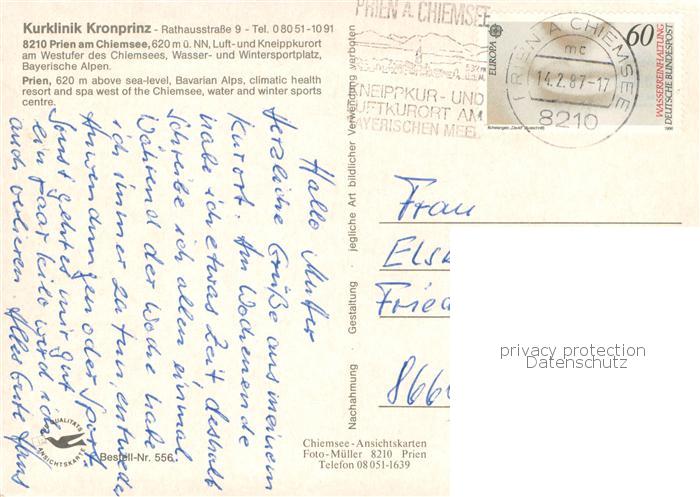 Kurklinik Kronprinz - Rathausstraße 9 - Tel. 0 80 51-10 91
8210 Prien am Chiemsee, 620 m ü. NN, Luft- und Kneippkurort
am Westufer des Chiemsees, Wasser- und Wintersportplatz,
Bayerische Alpen.
Prien, 620 m above sea-level, Bavarian Alps, climatic health
resort and spa west of the Chiemsee, water and winter sports
centre.
Hallo Mutter
Herzliche Grüße aus meinem
Kurort. Am Wochenende
habe ich etwas Zeit, deshalb
schreibe ich allen einmal.
Während der Woche habe
ich immer zu tun, entweder
Anwendungen oder Sport.
Sonst geht es mir gut
ein paar kilo werd ich
auch verlieren. Alles Gute Hans
QUALITÄTS
ANSICHTSKARTE
Bestell-Nr. 556
Nachahmung Gestaltung jegliche Art bildlicher Verwendung verboten
PRIEN A. CHIEMSEE
KNEIPPKUR- UND
LUFTKURORT AM
BAYERISCHEN MEER
PRIEN A CHIEMSEE
mc
14.2.87-17
8210
EUROPA
60
WASSERREINHALTUNG
DEUTSCHE BUNDESPOST
1986
Frau
Els
Fried
866
privacy protection
Datenschutz
Chiemsee-Ansichtskarten
Foto-Müller 8210 Prien
Telefon 08051-1639